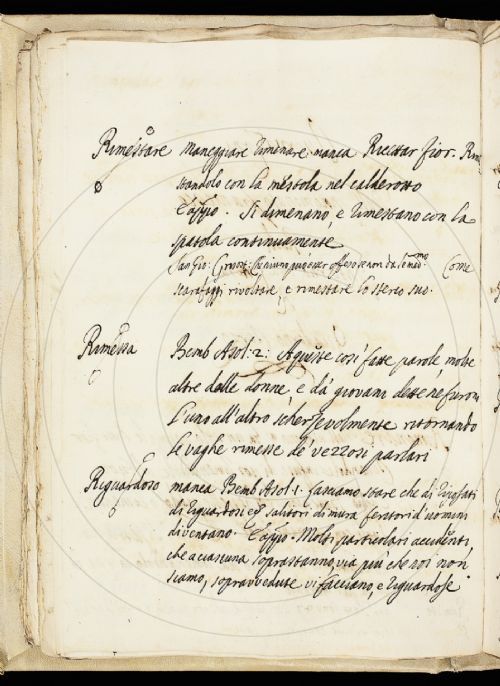 Rimestare maneggiare rimenare manca Ricettar fior. Rime
standolo con la mestola nel calderotto
Si dimenano, e rimestano con la
spatola continuamente
San Gio: Che niuno può esser offeso se non da se med.mo Come
scarafaggi rivoltare, e rimestare lo sterco suo.
Rimessa Bemb Asol: 2: A queste così fatte parole molte
altre dalle donne, e da' giovani dette ne furono
l'uno all'altro scherzevolmente ritornando
le vaghe rimesse de' vezzosi parlari
Riguardoso manca Bemb Asol: 1. facciamo stare che di
di riguardosi salitori di mura feratori d'uomini
diventano. Molti particolari accidenti,
che a ciascuna soprastanno, via più che noi non
siamo, sopravvedute vi facciano, e riguardose